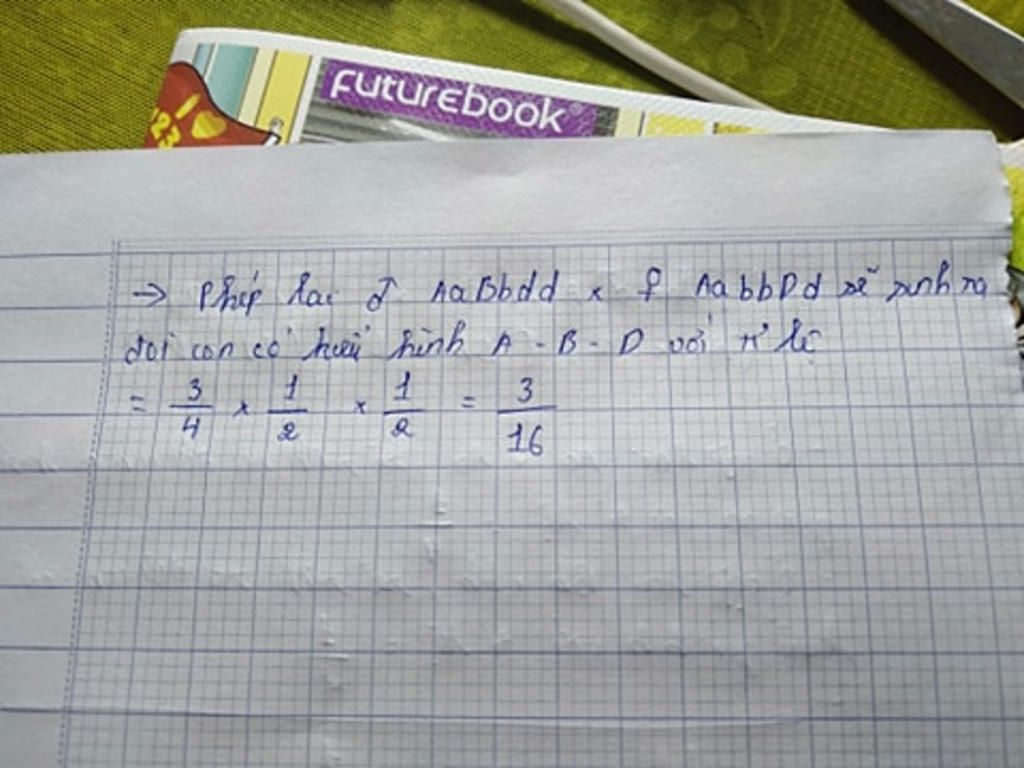 FUTUREBOOK
123
→ Phép lai ♂ AaBbdd x ♀ AabbDd sẽ sinh ra
đời con có kiểu hình A - B - D với tỉ lệ
= 3/4 x 1/2 x 1/2 = 3/16